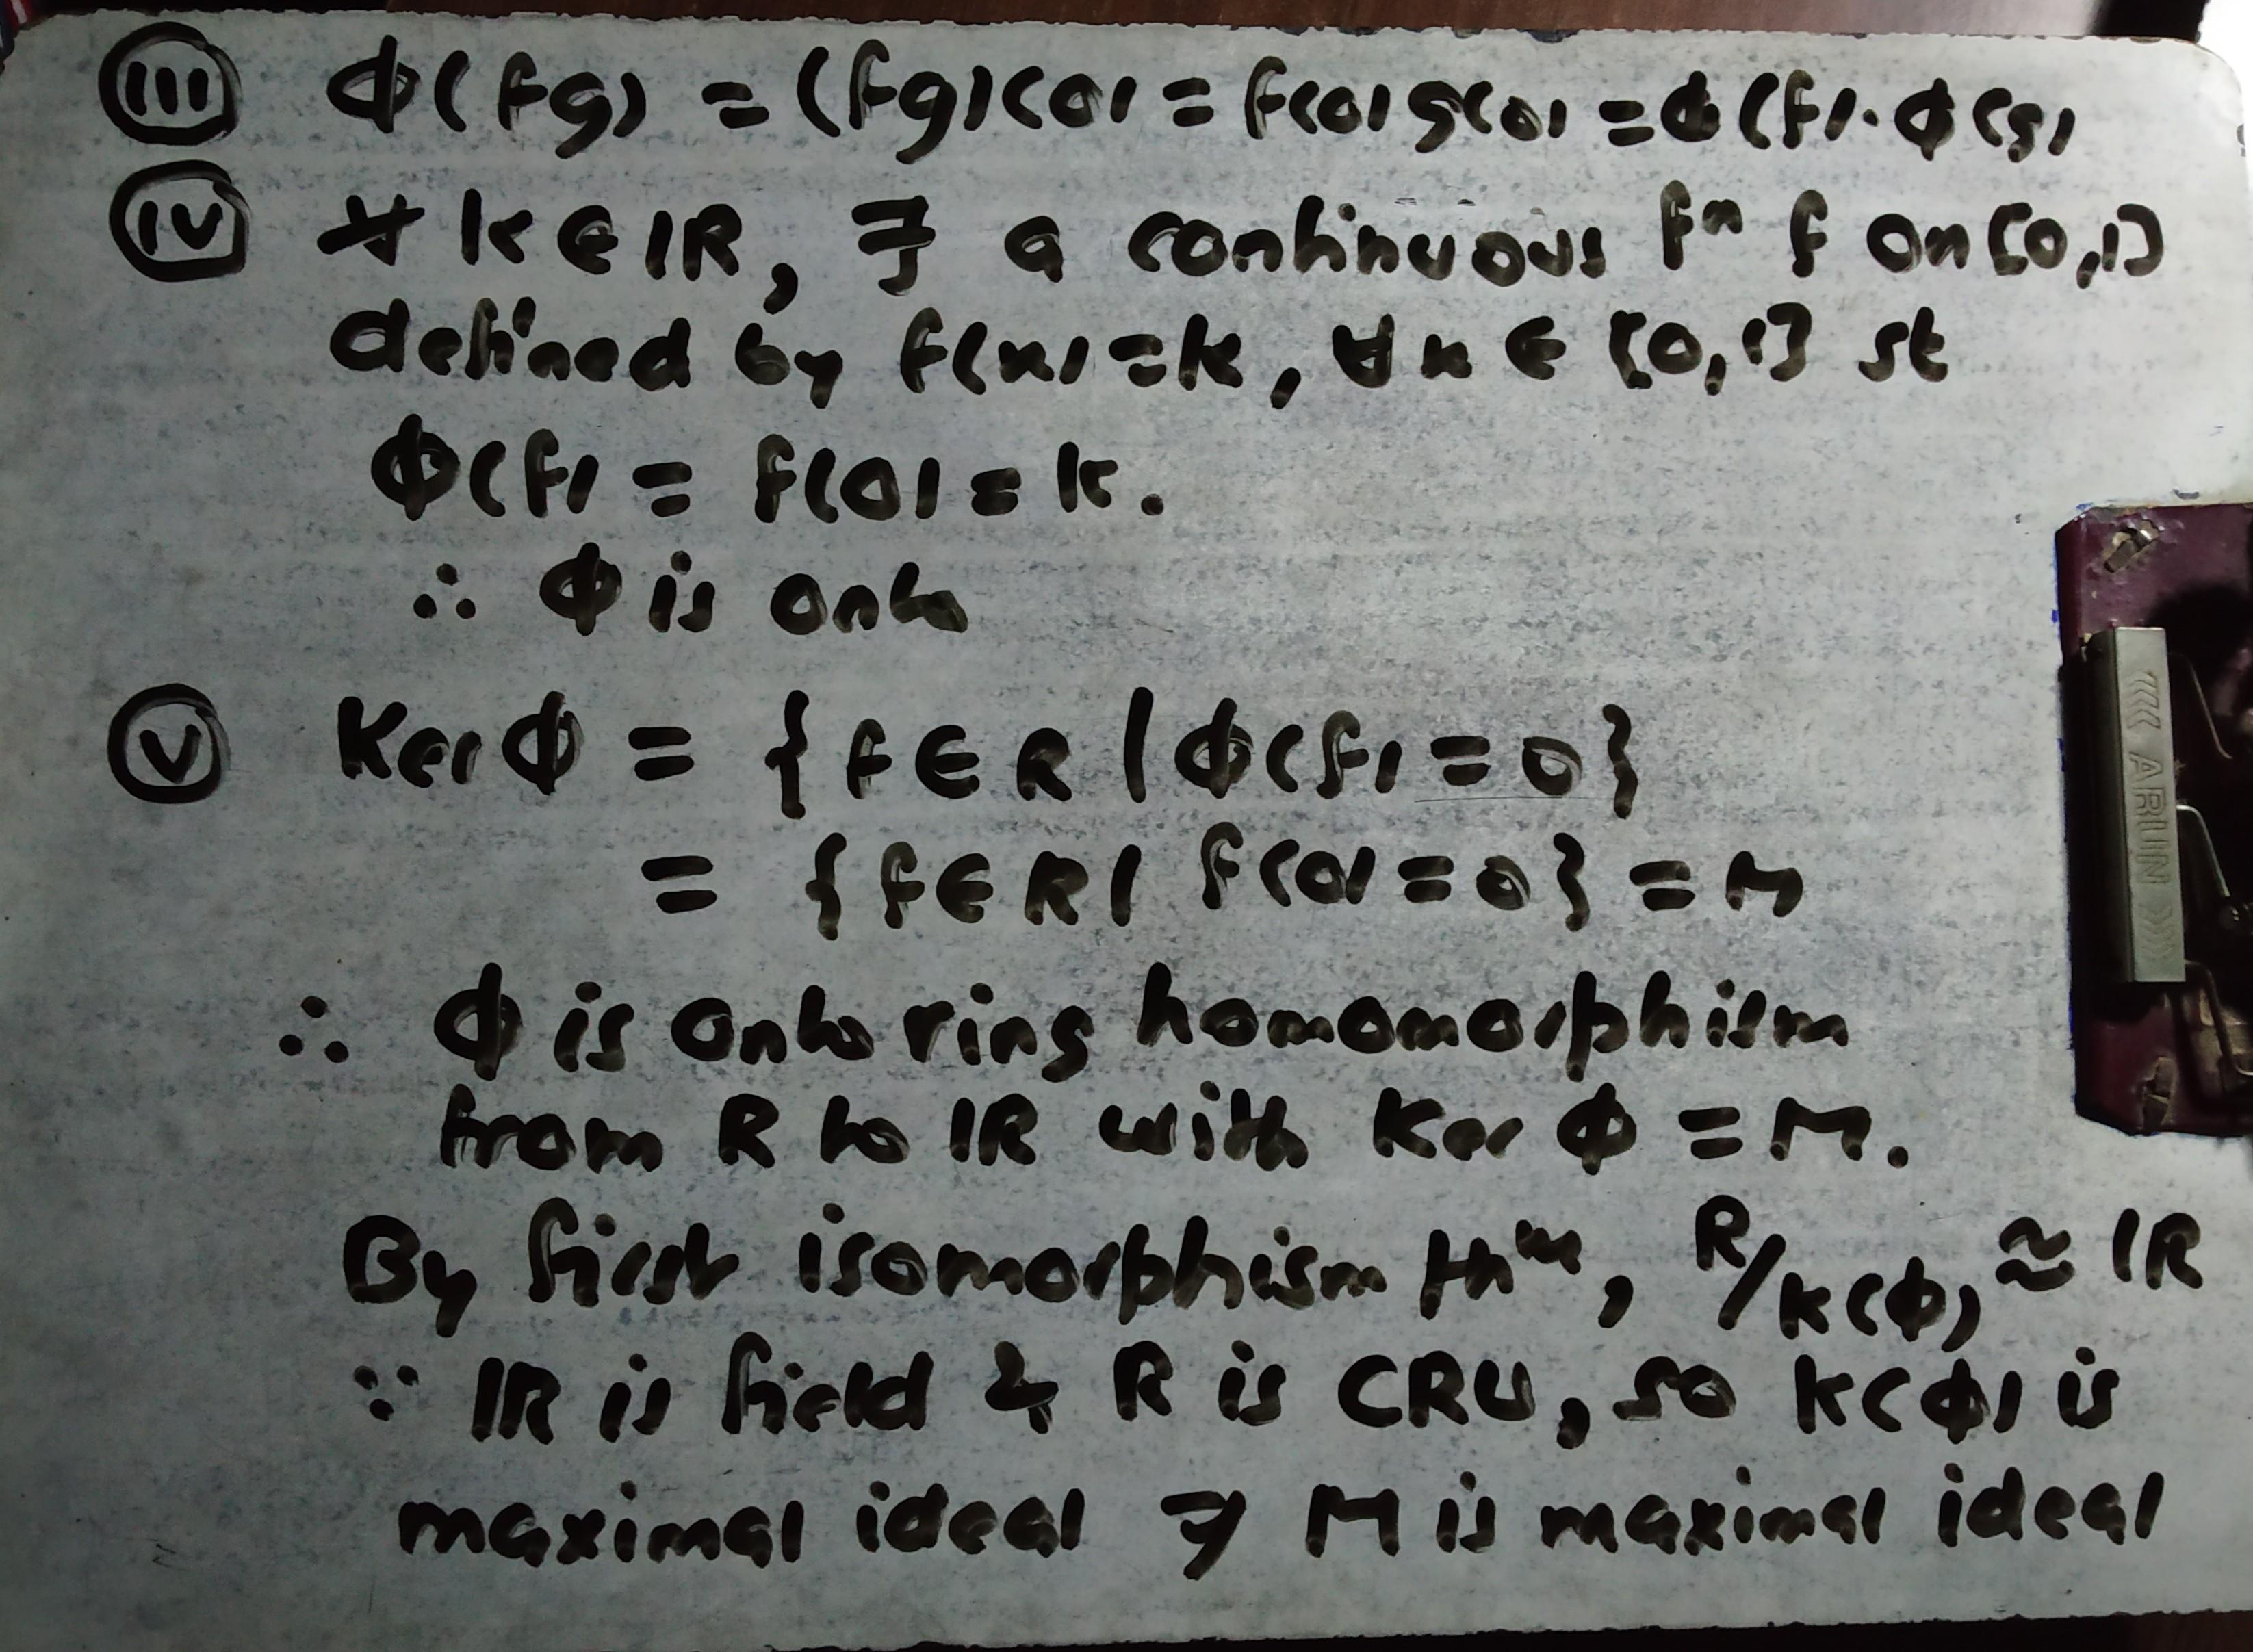 (III) Φ(fg) = (fg)(0) = f(0)g(0) = Φ(f).Φ(g)
(IV) ∀ k ∈ IR, ∃ a continuous fⁿ f on [0,1]
defined by f(x) = k, ∀ x ∈ [0,1] st
Φ(f) = f(0) = k.
∴ Φ is onto
(V) Ker Φ = {f ∈ R | Φ(f) = 0}
= {f ∈ R | f(0) = 0} = M
∴ Φ is onto ring homomorphism
from R to IR with Ker Φ = M.
By first isomorphism thᵐ, R/K(Φ) ≈ IR
∵ IR is field & R is CRU, so K(Φ) is
maximal ideal ⇒ M is maximal ideal
ARUN